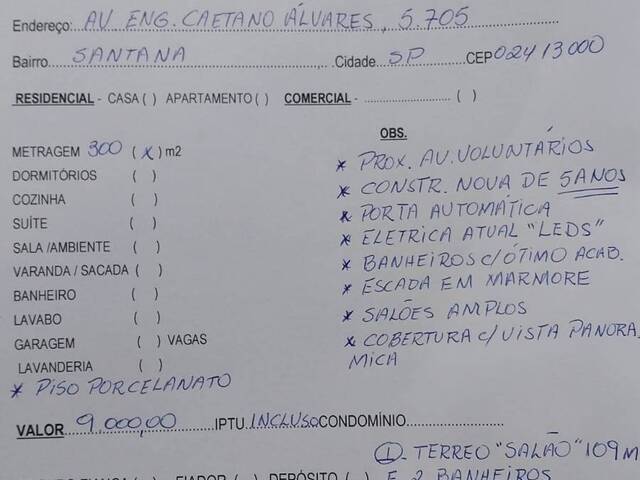 Endereço: AV. ENG. CAETANO ÁLVARES, 5.705
Bairro SANTANA Cidade SP CEP 02413000
RESIDENCIAL - CASA ( ) APARTAMENTO ( ) COMERCIAL - ........................ ( )
OBS.
METRAGEM 300 (x) m2
DORMITÓRIOS ( )
COZINHA ( )
SUÍTE ( )
SALA /AMBIENTE ( )
VARANDA / SACADA ( )
BANHEIRO ( )
LAVABO ( )
GARAGEM ( ) VAGAS
LAVANDERIA ( )
* PISO PORCELANATO
* PROX. AV. VOLUNTÁRIOS
* CONSTR. NOVA DE 5 ANOS
* PORTA AUTOMÁTICA
* ELETRICA ATUAL "LEDS"
* BANHEIROS C/ÓTIMO ACAB.
* ESCADA EM MARMORE
* SALÕES AMPLOS
* COBERTURA C/VISTA PANORA
MICA
VALOR 9.000,00 IPTU INCLUSO CONDOMÍNIO
① - TERREO "SALÃO" 109 M
FIADOR ( ) DEPÓSITO ( ) E 2 BANHEIROS